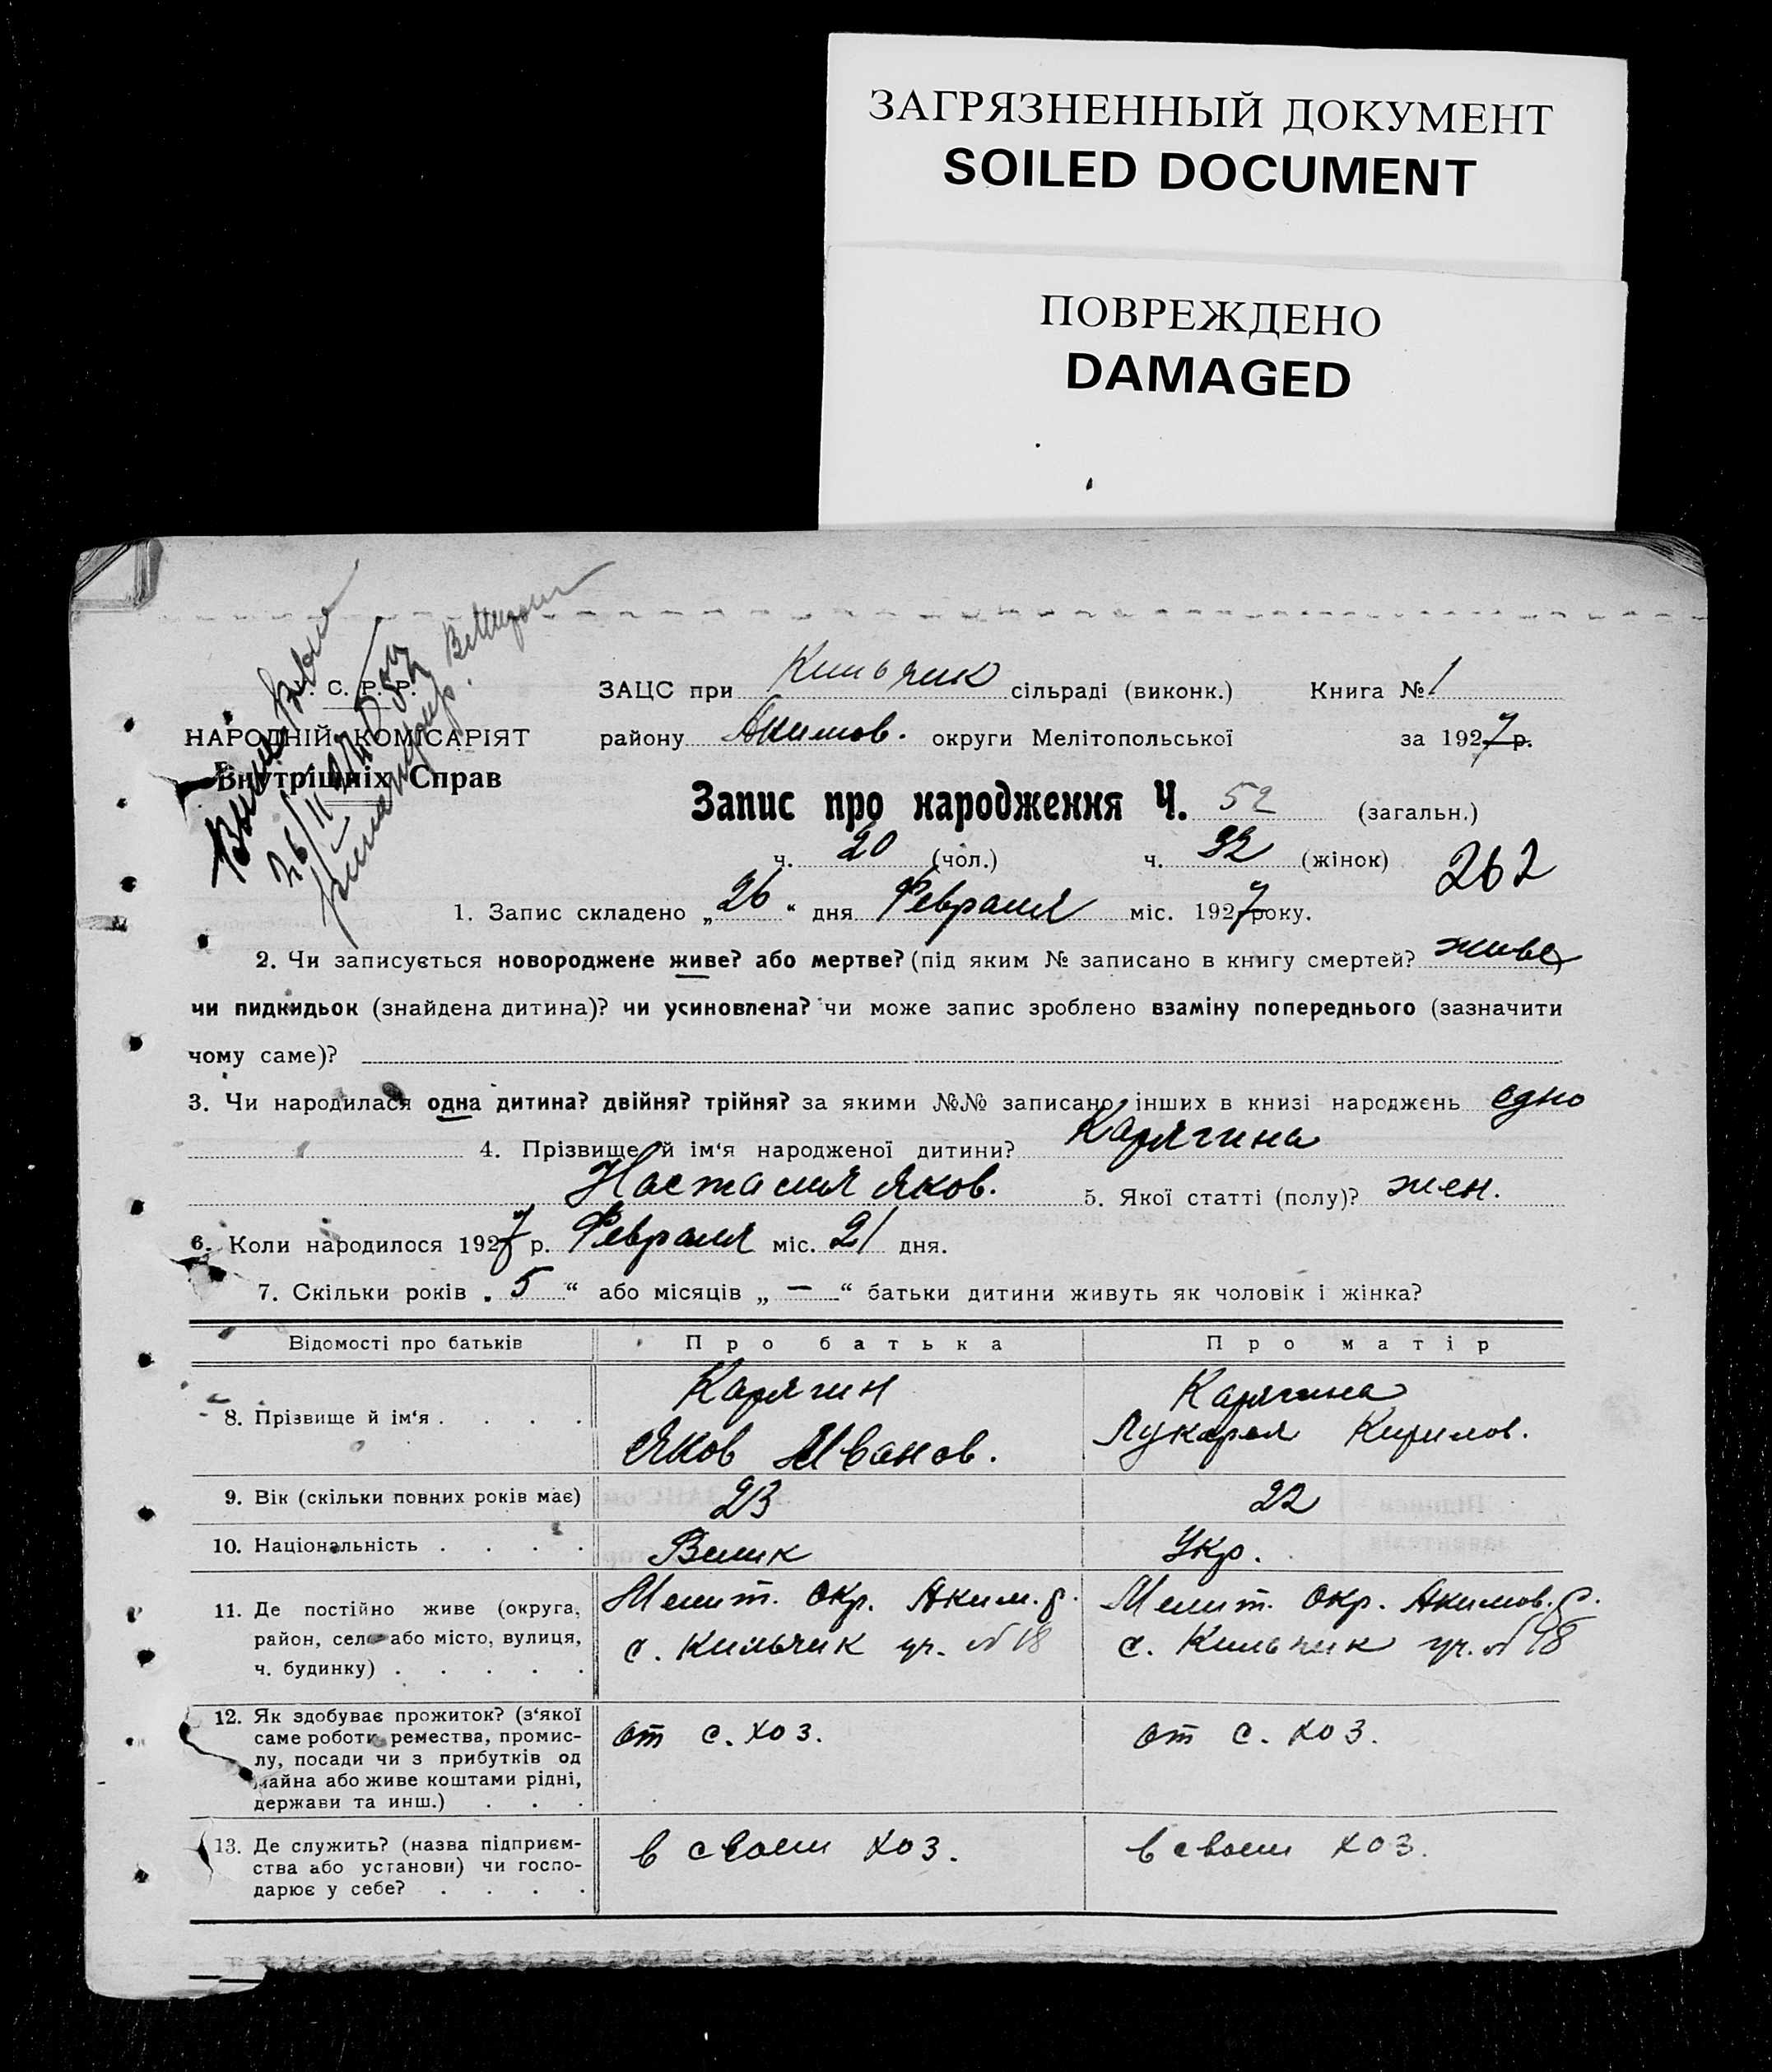 ЗАГРЯЗНЕННЫЙ ДОКУМЕНТ
SOILED DOCUMENT
ПОВРЕЖДЕНО
DAMAGED
У. С. Р. Р.
НАРОДНІЙ КОМІСАРІЯТ
Внутрішніх Справ
ЗАЦС при Кильчик сільраді (виконк.) Книга № 1
району Акимов. округи Мелітопольської за 1927 р.
Запис про народження Ч. 52 (загальн.)
ч. 20 (чол.) ч. 32 (жінок) 262
1. Запис складено „26“ дня Февраля міс. 1927 року.
2. Чи записується новороджене живе? або мертве? (під яким № записано в книгу смертей? живе
чи пидкидьок (знайдена дитина)? чи усиновлена? чи може запис зроблено взаміну попереднього (зазначити
чому саме)?
3. Чи народилася одна дитина? двійня? трійня? за якими №№ записано інших в книзі народжень одно
4. Прізвище й ім‘я народженої дитини? Карягина
Настасия Яков. 5. Якої статті (полу)? жен.
6. Коли народилося 1927 р. Февраля міс. 21 дня.
7. Скільки років „5“ або місяців „—“ батьки дитини живуть як чоловік і жінка?
Відомості про батьків Про батька Про матір
8. Прізвище й ім‘я . . . . Карягин Карягина
Яков Иванов. Лукаря Кирилов.
9. Вік (скільки повних років має) 23 22
10. Національність . . . . Велик Укр.
11. Де постійно живе (округа, Мелит. окр. Аким. р. Мелит. окр. Акимов. р.
район, село або місто, вулиця, с. Кильчик ул. №18 с. Кильчик ул. №18
ч. будинку) . . . . .
12. Як здобуває прожиток? (з‘якої от с. хоз. от с. хоз.
саме роботи, ремества, промис-
лу, посади чи з прибутків од
майна або живе коштами рідні,
держави та инш.) . . .
13. Де служить? (назва підприєм- в своем хоз. в своем хоз.
ства або установи) чи госпо-
дарює у себе? . . . .